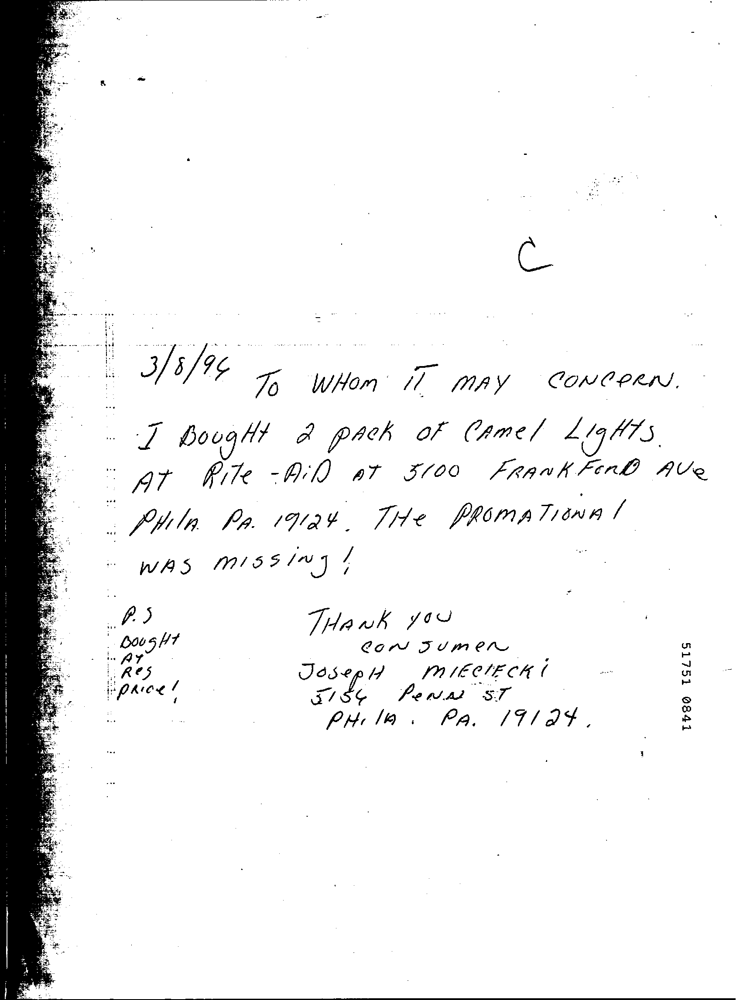 C
3/8/96 To WHom iT MAY CONCERN.
I Bought 2 pack of Camel Lights.
AT Rite-AiD AT 5100 FRANKFORD AVe
PHila PA. 19124. THe PROMATIONAl
WAS missing!
P.S
Bought
AT
Reg
price!
THANK you
consumer
Joseph MIECIECKi
5156 Penn ST
PHila. PA. 19124.
51751 0841